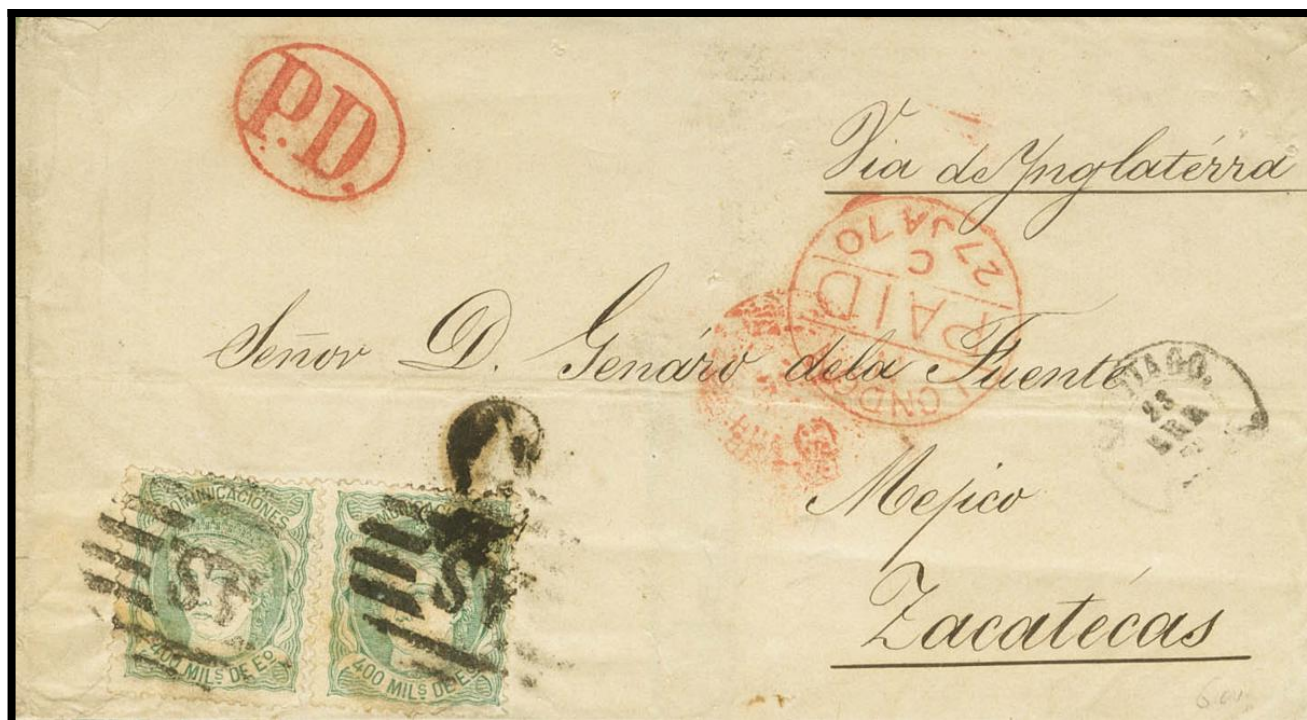 P.D.
Via de Ynglatérra
LONDON
PAID
C
27 JA 70
Señor D. Genáro dela Fuente
23
ENE
Mejico
Zacatécas
COMUNICACIONES
400 MILS DE EO
400 MILS DE EO